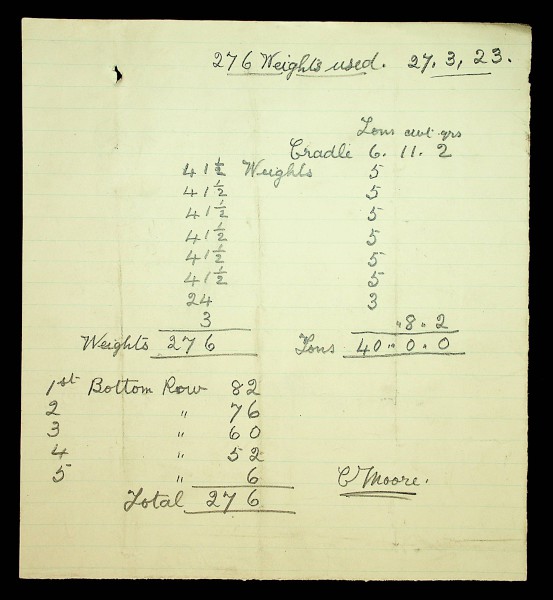 276 Weights used. 27. 3, 23.
Tons cwt qrs
Cradle 6. 11. 2
41½ Weights 5
41½ 5
41½ 5
41½ 5
41½ 5
41½ 5
24 3
3 " 8 " 2
Weights 276 Tons 40 " 0 . 0
1st Bottom Row 82
2 " 76
3 " 60
4 " 52
5 " 6
Total 276
C Moore.